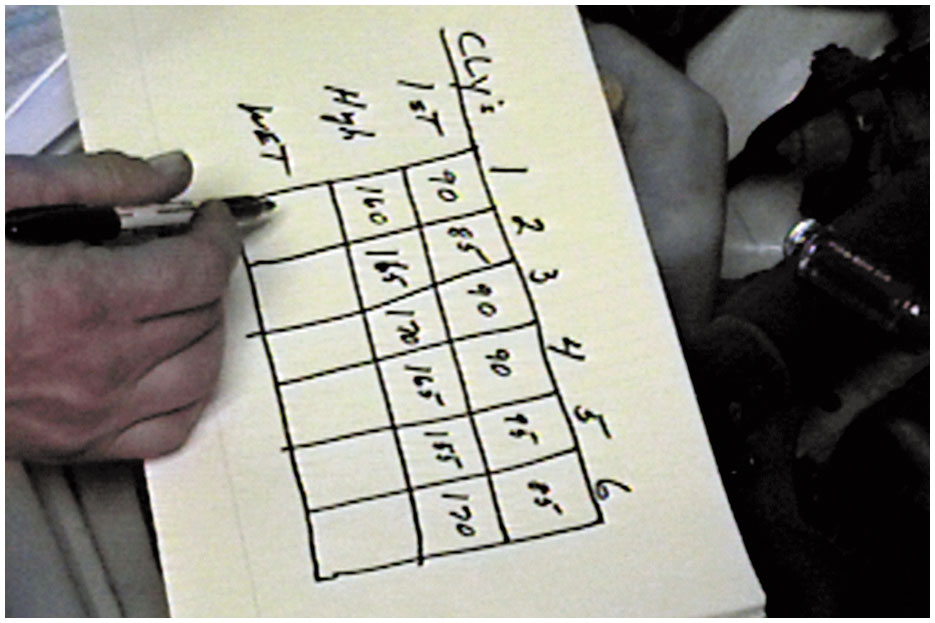 CLY's 1 2 3 4 5 6
1ST 90 85 90 90 95 85
High 160 165 170 165 155 170
WET